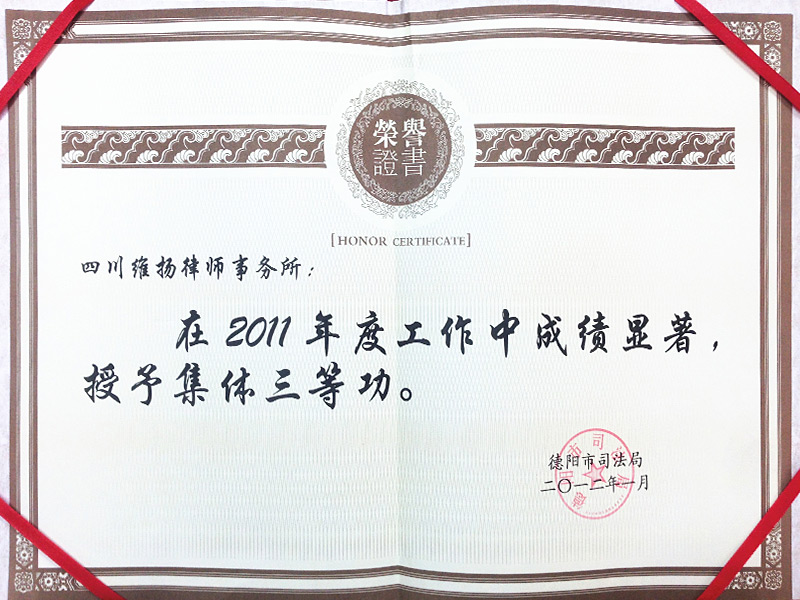 榮譽
證書
[HONOR CERTIFICATE]
四川维扬律师事务所：
在 2011 年度工作中成绩显著，
授予集体三等功。
德阳市司法局
二〇一二年一月
德阳市司法局